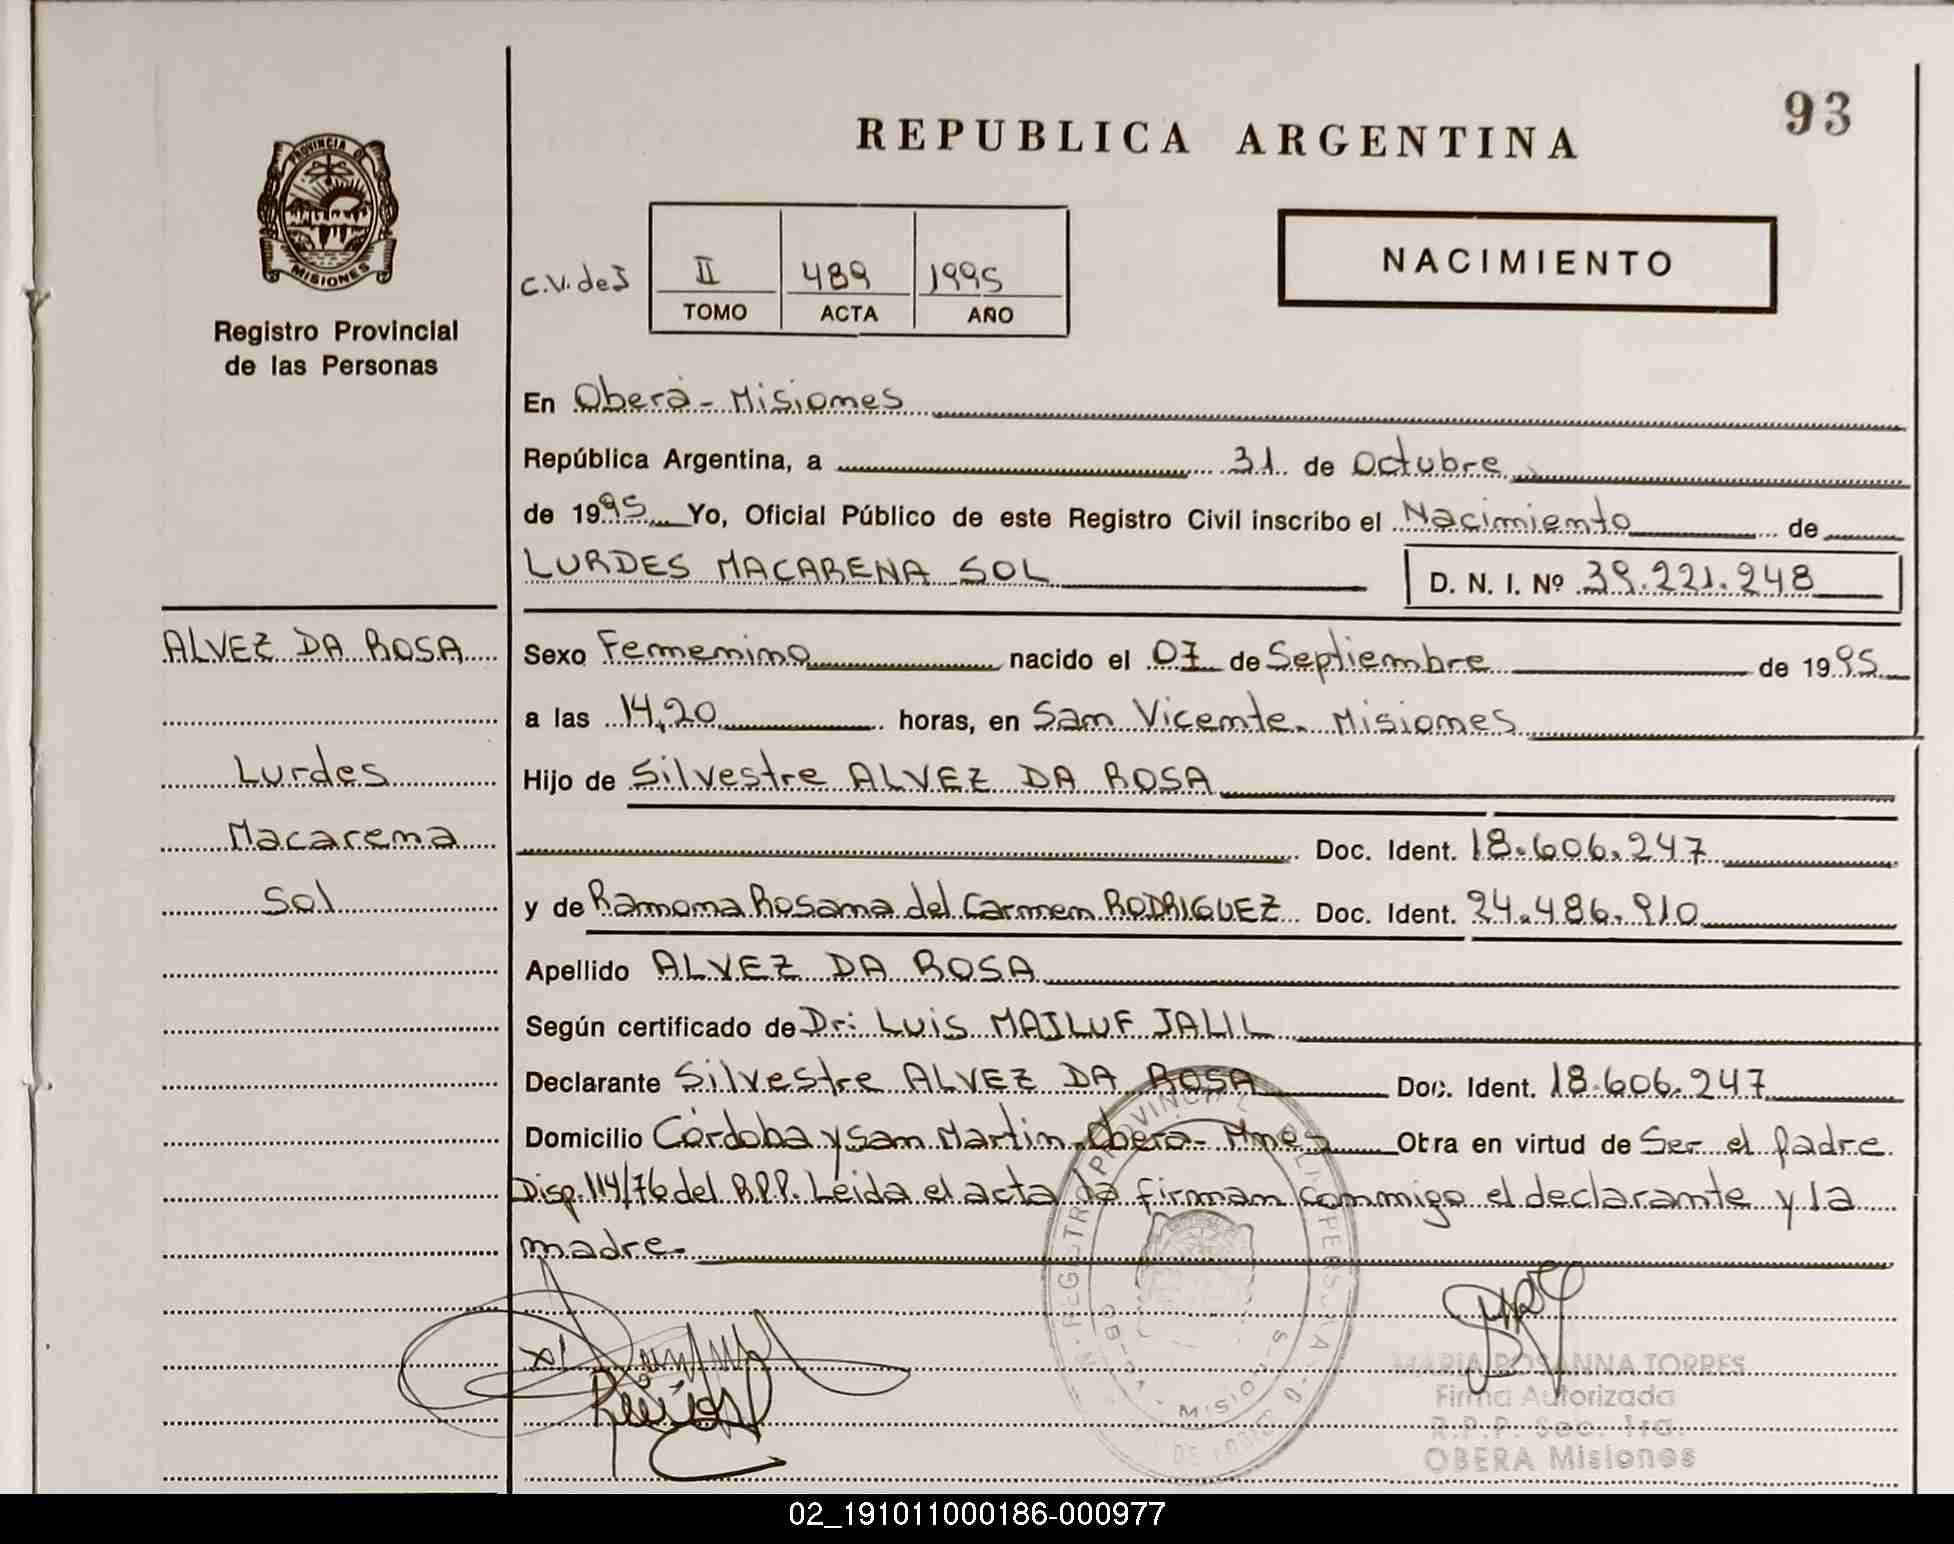 93
REPUBLICA ARGENTINA
PROVINCIA DE
MISIONES
Registro Provincial
de las Personas
NACIMIENTO
C.V. de I
II 489 1995
TOMO ACTA AÑO
En Oberá - Misiones
República Argentina, a 31 de Octubre
de 1995 Yo, Oficial Público de este Registro Civil inscribo el Nacimiento de
LURDES MACARENA SOL D. N. I. Nº 39.221.248
ALVEZ DA ROSA
Lurdes
Macarena
Sol
Sexo Femenino nacido el 07 de Septiembre de 1995
a las 14,20 horas, en San Vicente. Misiones
Hijo de Silvestre ALVEZ DA ROSA
Doc. Ident. 18.606.247
y de Ramona Rosana del Carmen RODRIGUEZ Doc. Ident. 24.486.910
Apellido ALVEZ DA ROSA
Según certificado de Dr: Luis MAJLUF JALIL
Declarante Silvestre ALVEZ DA ROSA Doc. Ident. 18.606.247
Domicilio Córdoba y San Martín - Oberá - Mnes Obra en virtud de Ser el padre
Disp. 114/76 del R.P.P. Leida el acta la firman conmigo el declarante y la
madre.
MARIA ROSANNA TORRES
Firma Autorizada
R.P.P. Sec. 1ra.
OBERA Misiones
02_191011000186-000977